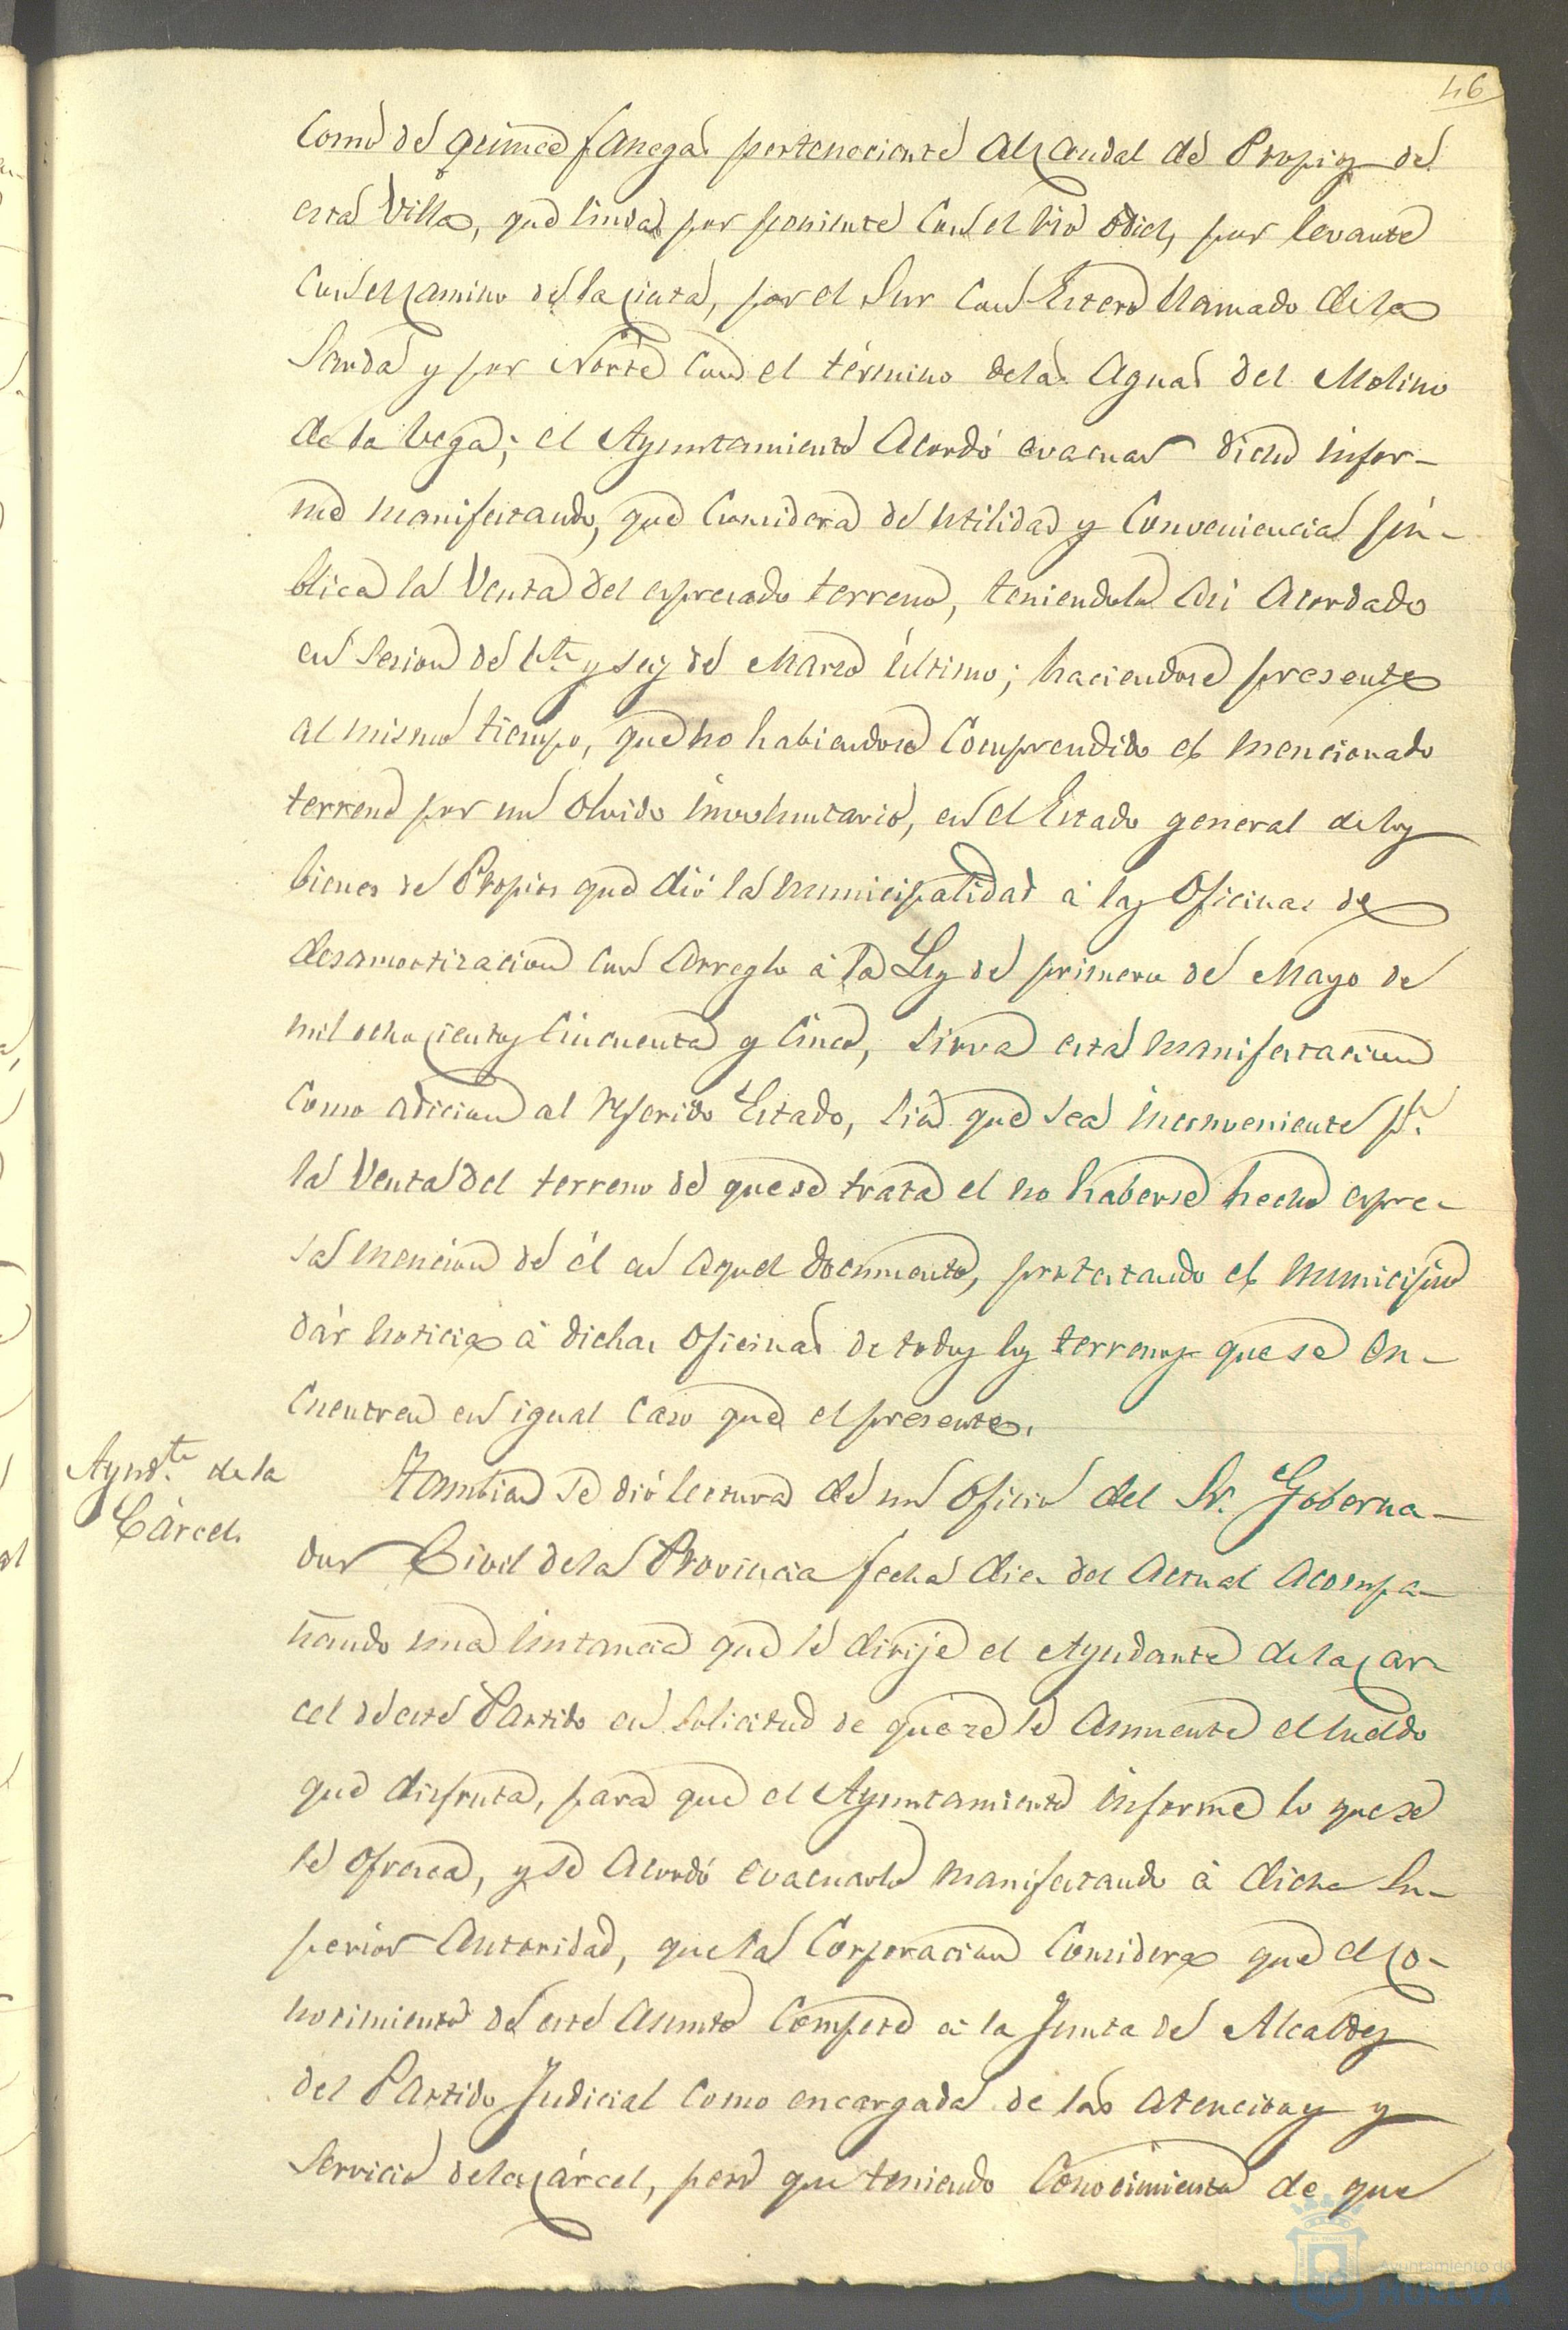 46
como de quince fanegas perteneciente al caudal de Propios de
esta Villa, que linda por poniente con el rio Odiel, por levante
con el camino de la cinta, por el Sur con Estero llamado de la
Sarda y por Norte con el término de las Aguas del Molino
de la Vega; el Ayuntamiento acordó evacuar dicho infor-
me manifestando, que considera de utilidad y conveniencia pú-
blica la Venta del espresado terreno, teniendolo asi acordado
en sesion de Vte. y seis de Marzo último; haciendose presente
al mismo tiempo, que no habiendose comprendido el mencionado
terreno por un olvido involuntario, en el Estado general de los
bienes de Propios que dió la municipalidad á las Oficinas de
desamortizacion con arreglo á la Ley de primero de Mayo de
mil ochocientos cincuenta y cinco, sirva esta manifestacion
como adicion al referido Estado, sin que sea inconveniente pa.
la Venta del terreno de que se trata el no haberse hecho espre-
sa mencion de él en aquel documento, protestando el municipio
dár noticia á dichas oficinas de todos los terrenos que se en-
cuentren en igual caso que el presente.
Aynd.te de la
Cárcel.
Tambien se dió lectura de un oficio del Sr. Goberna-
dor Civil de la Provincia fecha diez del actual acompa-
ñando una instancia que le dirije el Ayudante de la car-
cel de este Partido en solicitud de que se le aumente el sueldo
que disfruta, para que el Ayuntamiento informe lo que se
le ofrezca, y se acordó evacuarlo manifestando á dicha Su-
perior Autoridad, que la Corporacion considera que el co-
nocimiento de este asunto compete á la Junta de Alcaldes
del Partido Judicial como encargada de las atenciones y
servicio de la cárcel, pero que teniendo conocimiento de que
Ayuntamiento de
HUELVA